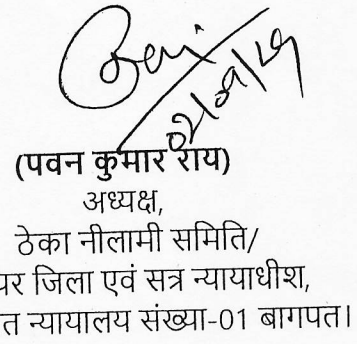 02/09/29
(पवन कुमार राय)
अध्यक्ष,
ठेका नीलामी समिति/
पर जिला एवं सत्र न्यायाधीश,
त न्यायालय संख्या-01 बागपत।